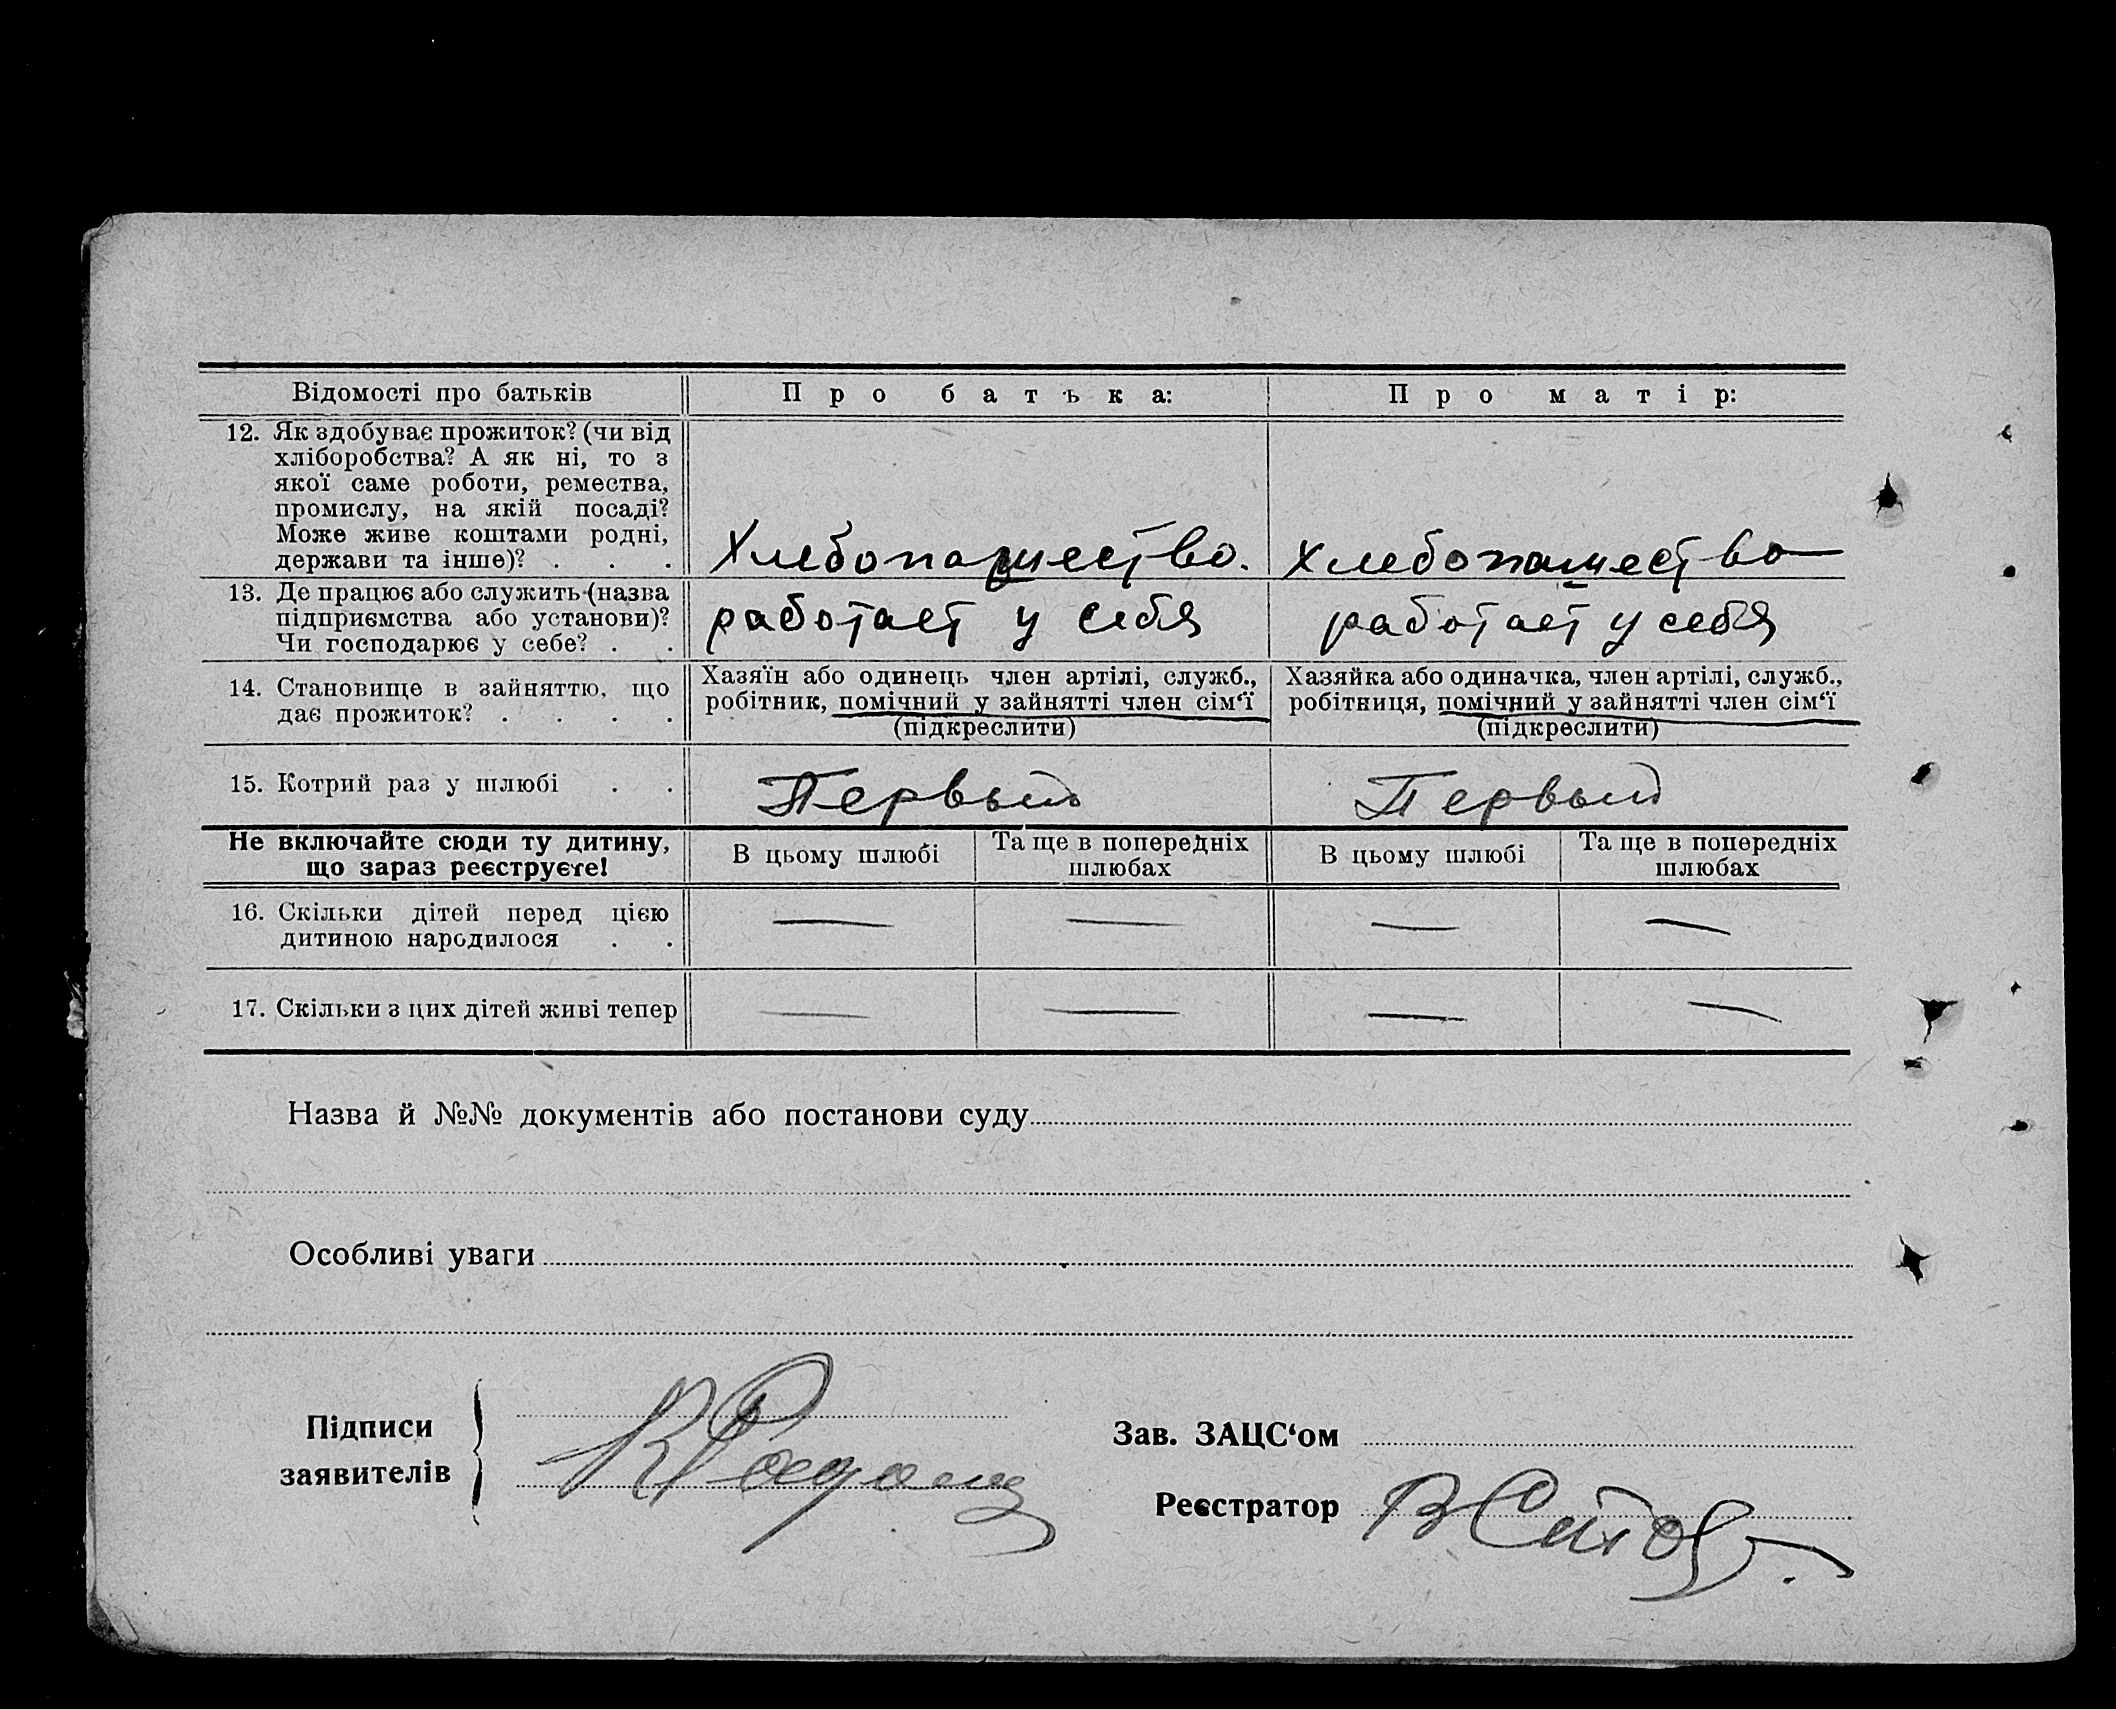 Відомості про батьків Про батька: Про матір:
12. Як здобуває прожиток? (чи від
хліборобства? А як ні, то з
якої саме роботи, ремества,
промислу, на якій посаді?
Може живе коштами родні,
держави та інше)? . . .
Хлебопашество. Хлебопашество
13. Де працює або служить (назва
підприємства або установи)?
Чи господарює у себе? . .
работает у себя работает у себя
14. Становище в зайняттю, що
дає прожиток? . . . .
Хазяїн або одинець член артілі, служб.,
робітник, помічний у зайнятті член сім‘ї
(підкреслити)
Хазяйка або одиначка, член артілі, служб.,
робітниця, помічний у зайнятті член сім‘ї
(підкреслити)
15. Котрий раз у шлюбі . . Первый Первый
Не включайте сюди ту дитину,
що зараз реєструєте!
В цьому шлюбі
Та ще в попередніх
шлюбах
В цьому шлюбі
Та ще в попередніх
шлюбах
16. Скільки дітей перед цією
дитиною народилося . .
— — — —
17. Скільки з цих дітей живі тепер — — — —
Назва й №№ документів або постанови суду
Особливі уваги
Підписи
заявителів
Зав. ЗАЦС‘ом
Реєстратор